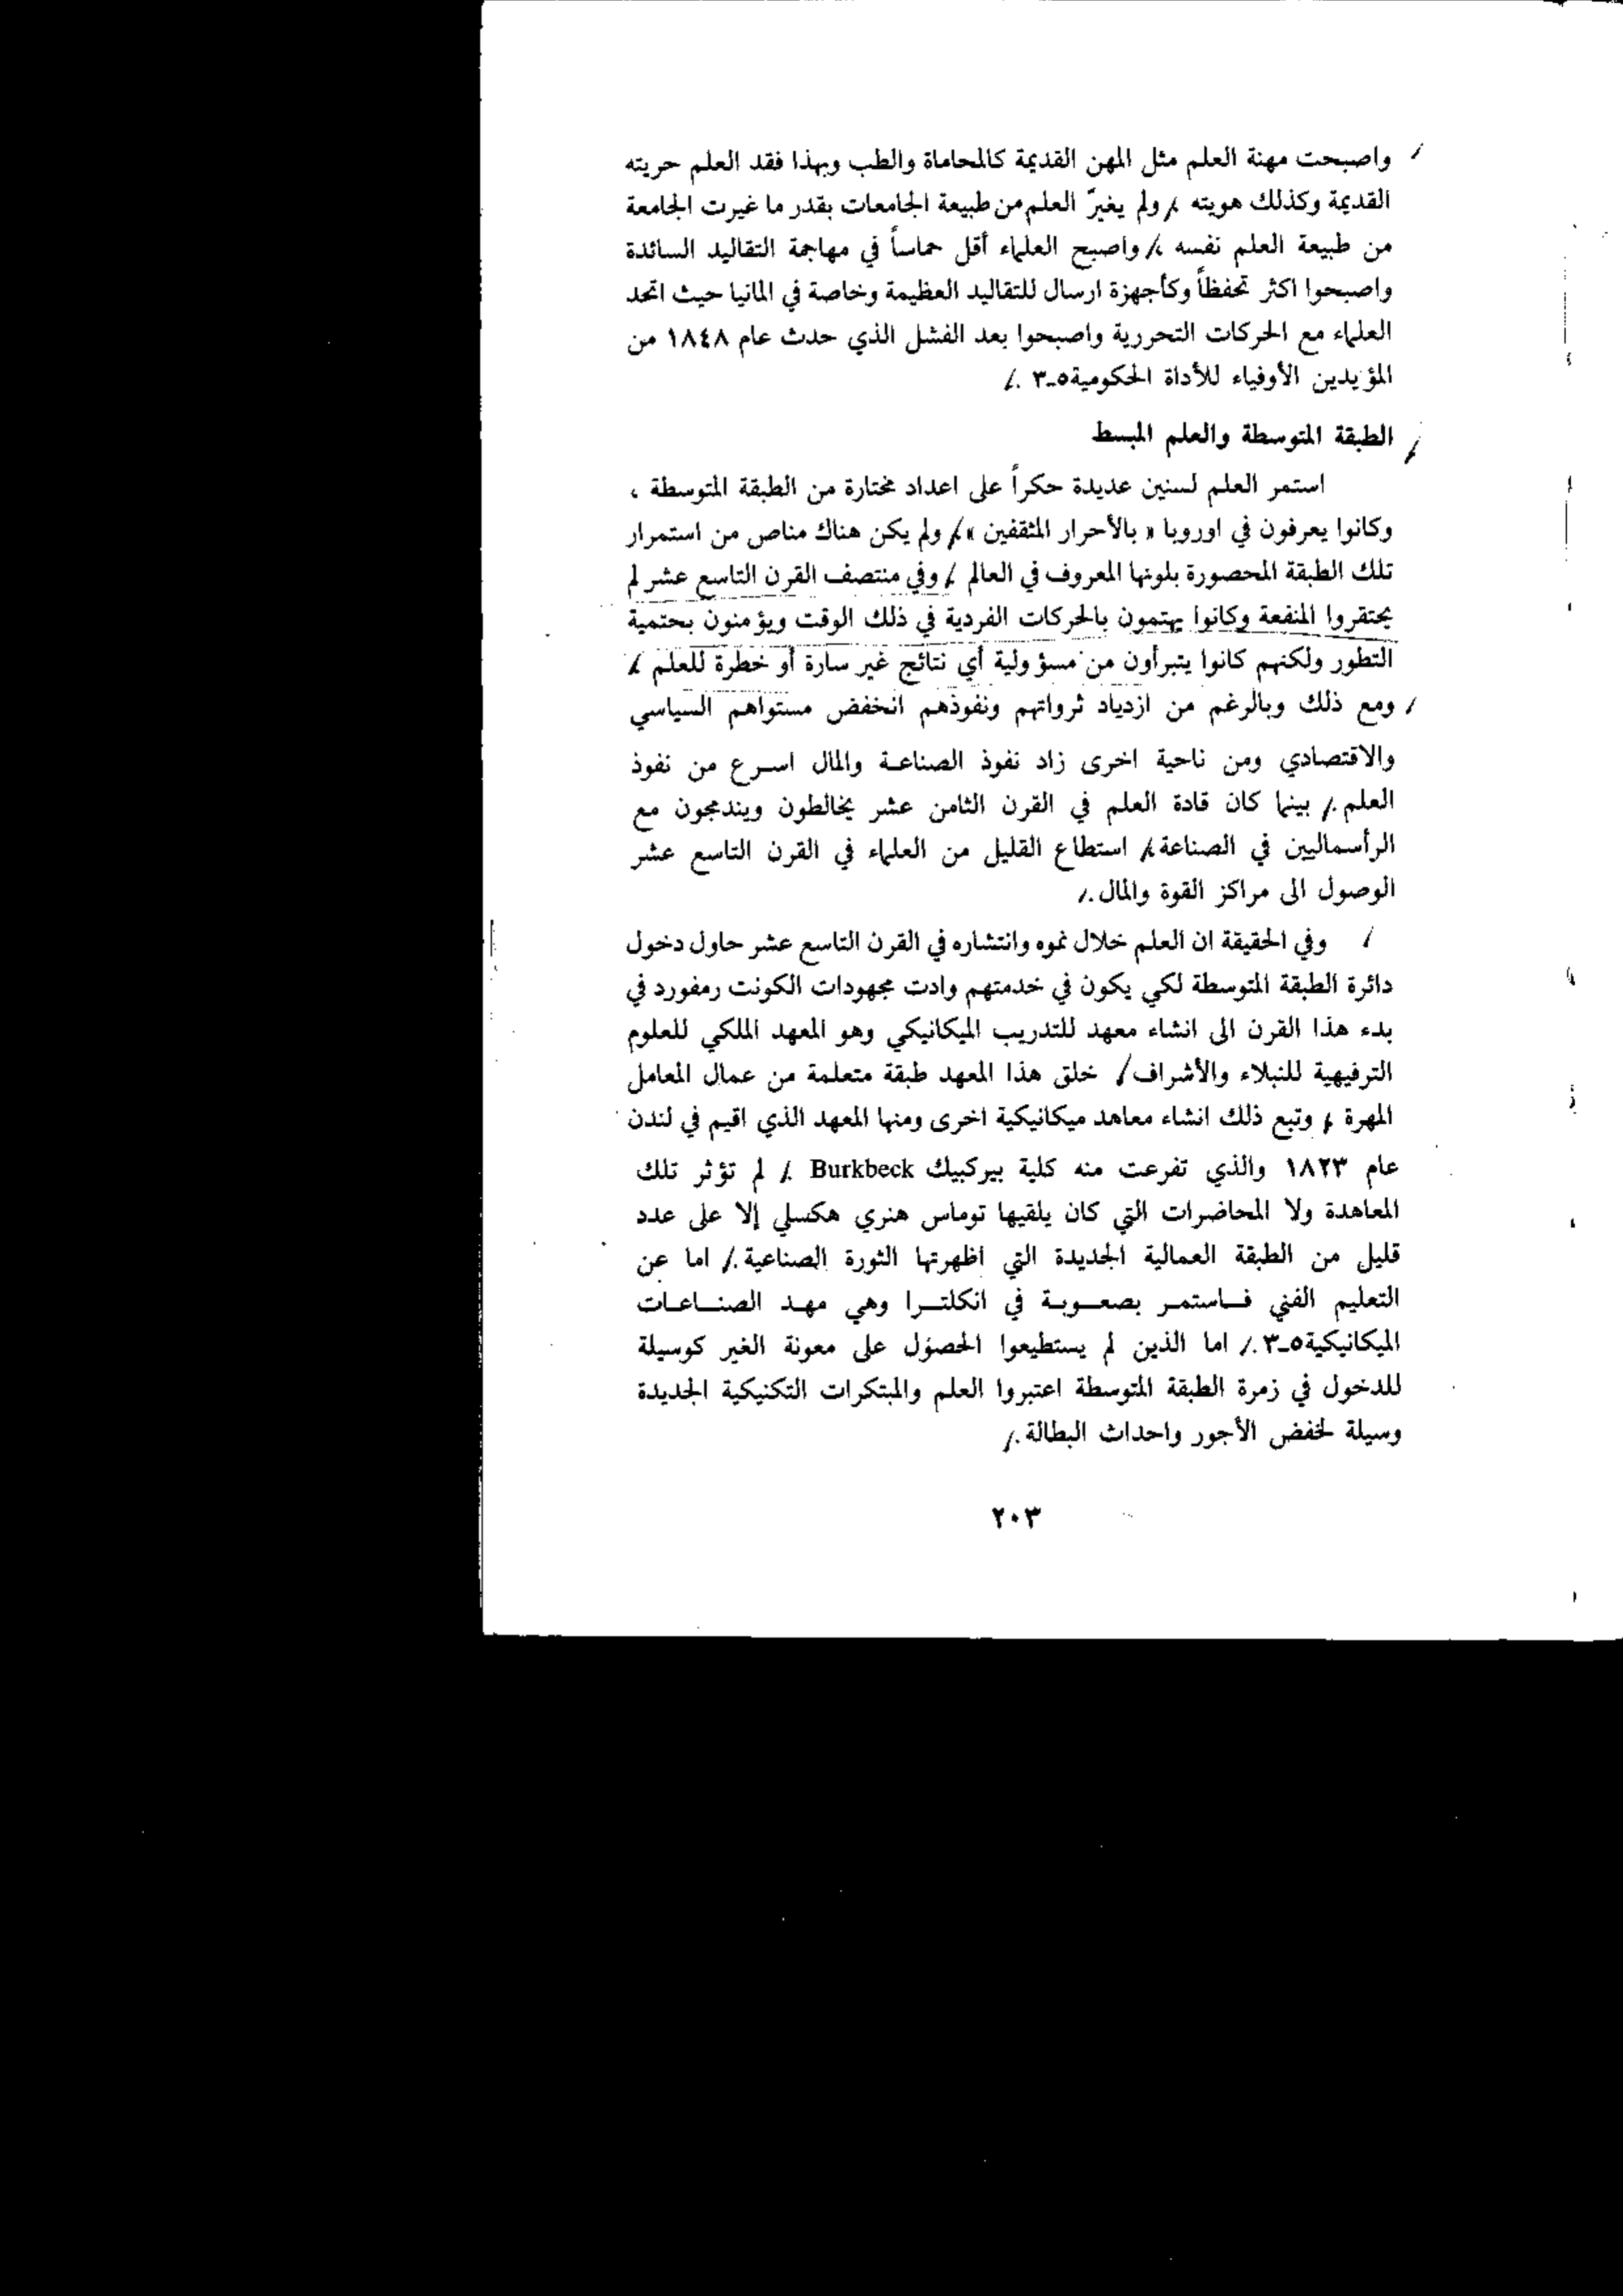 واصبحت مهنة العلم مثل المهن القديمة كالمحاماة والطب وبهذا فقد العلم حريته
القديمة وكذلك هويته ، ولم يغيرّ العلم من طبيعة الجامعات بقدر ما غيرت الجامعة
من طبيعة العلم نفسه ، واصبح العلماء أقل حماساً في مهاجمة التقاليد السائدة
واصبحوا اكثر تحفظاً وكأجهزة ارسال للتقاليد العظيمة وخاصة في المانيا حيث اتحد
العلماء مع الحركات التحررية واصبحوا بعد الفشل الذي حدث عام ١٨٤٨ من
المؤيدين الأوفياء للأداة الحكومية٥ـ٣ .
الطبقة المتوسطة والعلم المبسط
استمر العلم لسنين عديدة حكراً على اعداد مختارة من الطبقة المتوسطة ،
وكانوا يعرفون في اوروبا « بالأحرار المثقفين » ، ولم يكن هناك مناص من استمرار
تلك الطبقة المحصورة بلونها المعروف في العالم ، وفي منتصف القرن التاسع عشر لم
يحتقروا المنفعة وكانوا يهتمون بالحركات الفردية في ذلك الوقت ويؤمنون بحتمية
التطور ولكنهم كانوا يتبرأون من مسؤولية أي نتائج غير سارة أو خطرة للعلم ،
ومع ذلك وبالرغم من ازدياد ثرواتهم ونفوذهم انخفض مستواهم السياسي
والاقتصادي ومن ناحية اخرى زاد نفوذ الصناعة والمال اسرع من نفوذ
العلم . بينما كان قادة العلم في القرن الثامن عشر يخالطون ويندمجون مع
الرأسماليين في الصناعة ، استطاع القليل من العلماء في القرن التاسع عشر
الوصول الى مراكز القوة والمال .
وفي الحقيقة ان العلم خلال نموه وانتشاره في القرن التاسع عشر حاول دخول
دائرة الطبقة المتوسطة لكي يكون في خدمتهم وادت مجهودات الكونت رمفورد في
بدء هذا القرن الى انشاء معهد للتدريب الميكانيكي وهو المعهد الملكي للعلوم
الترفيهية للنبلاء والأشراف / خلق هذا المعهد طبقة متعلمة من عمال المعامل
المهرة ، وتبع ذلك انشاء معاهد ميكانيكية اخرى ومنها المعهد الذي اقيم في لندن
عام ١٨٢٣ والذي تفرعت منه كلية بيركبيك Burkbeck . لم تؤثر تلك
المعاهدة ولا المحاضرات التي كان يلقيها توماس هنري هكسلي إلا على عدد
قليل من الطبقة العمالية الجديدة التي اظهرتها الثورة الصناعية . اما عن
التعليم الفني فاستمر بصعوبة في انكلترا وهي مهد الصناعات
الميكانيكية٥ـ٣ . اما الذين لم يستطيعوا الحصول على معونة الغير كوسيلة
للدخول في زمرة الطبقة المتوسطة اعتبروا العلم والمبتكرات التكنيكية الجديدة
وسيلة لخفض الأجور واحداث البطالة .
٢٠٣